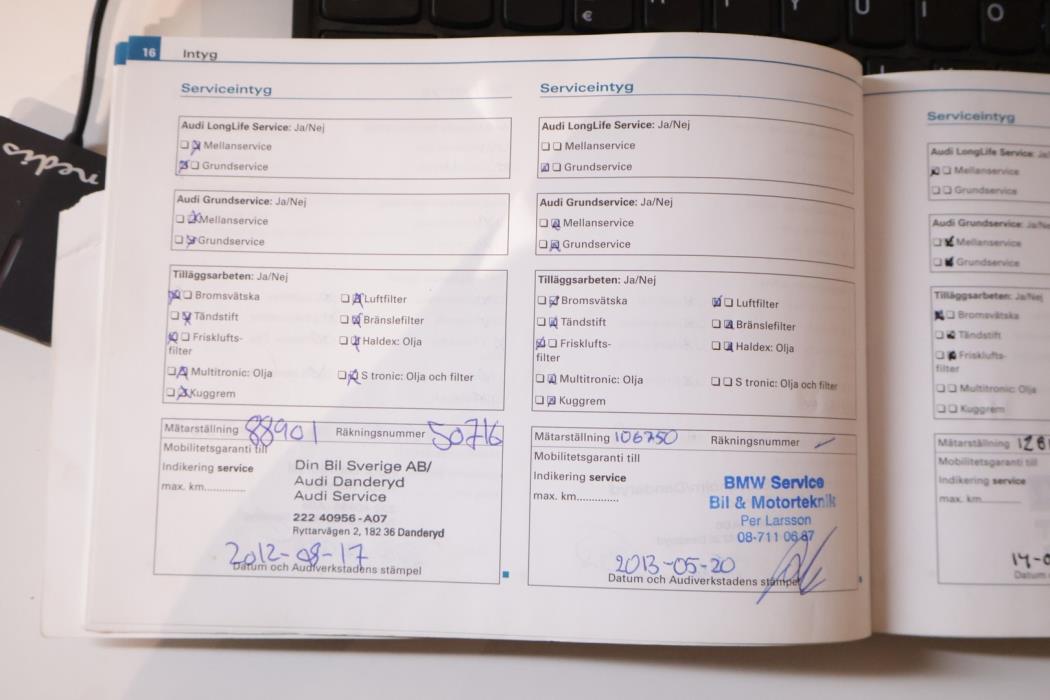 €
Y
U
I
O
nedis
16 Intyg
Serviceintyg
Audi LongLife Service: Ja/Nej
Mellanservice
Grundservice
Audi Grundservice: Ja/Nej
Mellanservice
Grundservice
Tilläggsarbeten: Ja/Nej
Bromsvätska Luftfilter
Tändstift Bränslefilter
Frisklufts- Haldex: Olja
filter
Multitronic: Olja S tronic: Olja och filter
Kuggrem
Mätarställning 88901 Räkningsnummer 50716
Mobilitetsgaranti till
Indikering service
max. km.............
Din Bil Sverige AB/
Audi Danderyd
Audi Service
222 40956-A07
Ryttarvägen 2, 182 36 Danderyd
2012-08-17
Datum och Audiverkstadens stämpel
Serviceintyg
Audi LongLife Service: Ja/Nej
Mellanservice
Grundservice
Audi Grundservice: Ja/Nej
Mellanservice
Grundservice
Tilläggsarbeten: Ja/Nej
Bromsvätska Luftfilter
Tändstift Bränslefilter
Frisklufts- Haldex: Olja
filter
Multitronic: Olja S tronic: Olja och filter
Kuggrem
Mätarställning 106750 Räkningsnummer –
Mobilitetsgaranti till
Indikering service
max. km.............
BMW Service
Bil & Motorteknik
Per Larsson
08-711 06 87
2013-05-20
Datum och Audiverkstadens stämpel
Serviceintyg
Audi LongLife Service: Ja/
Mellanservice
Grundservice
Audi Grundservice: Ja/Ne
Mellanservice
Grundservice
Tilläggsarbeten: Ja/Nej
Bromsvätska
Tändstift
Frisklufts-
filter
Multitronic: Olja
Kuggrem
Mätarställning 126
Mobilitetsgaranti till
Indikering service
max. km.............
14-0
Datum